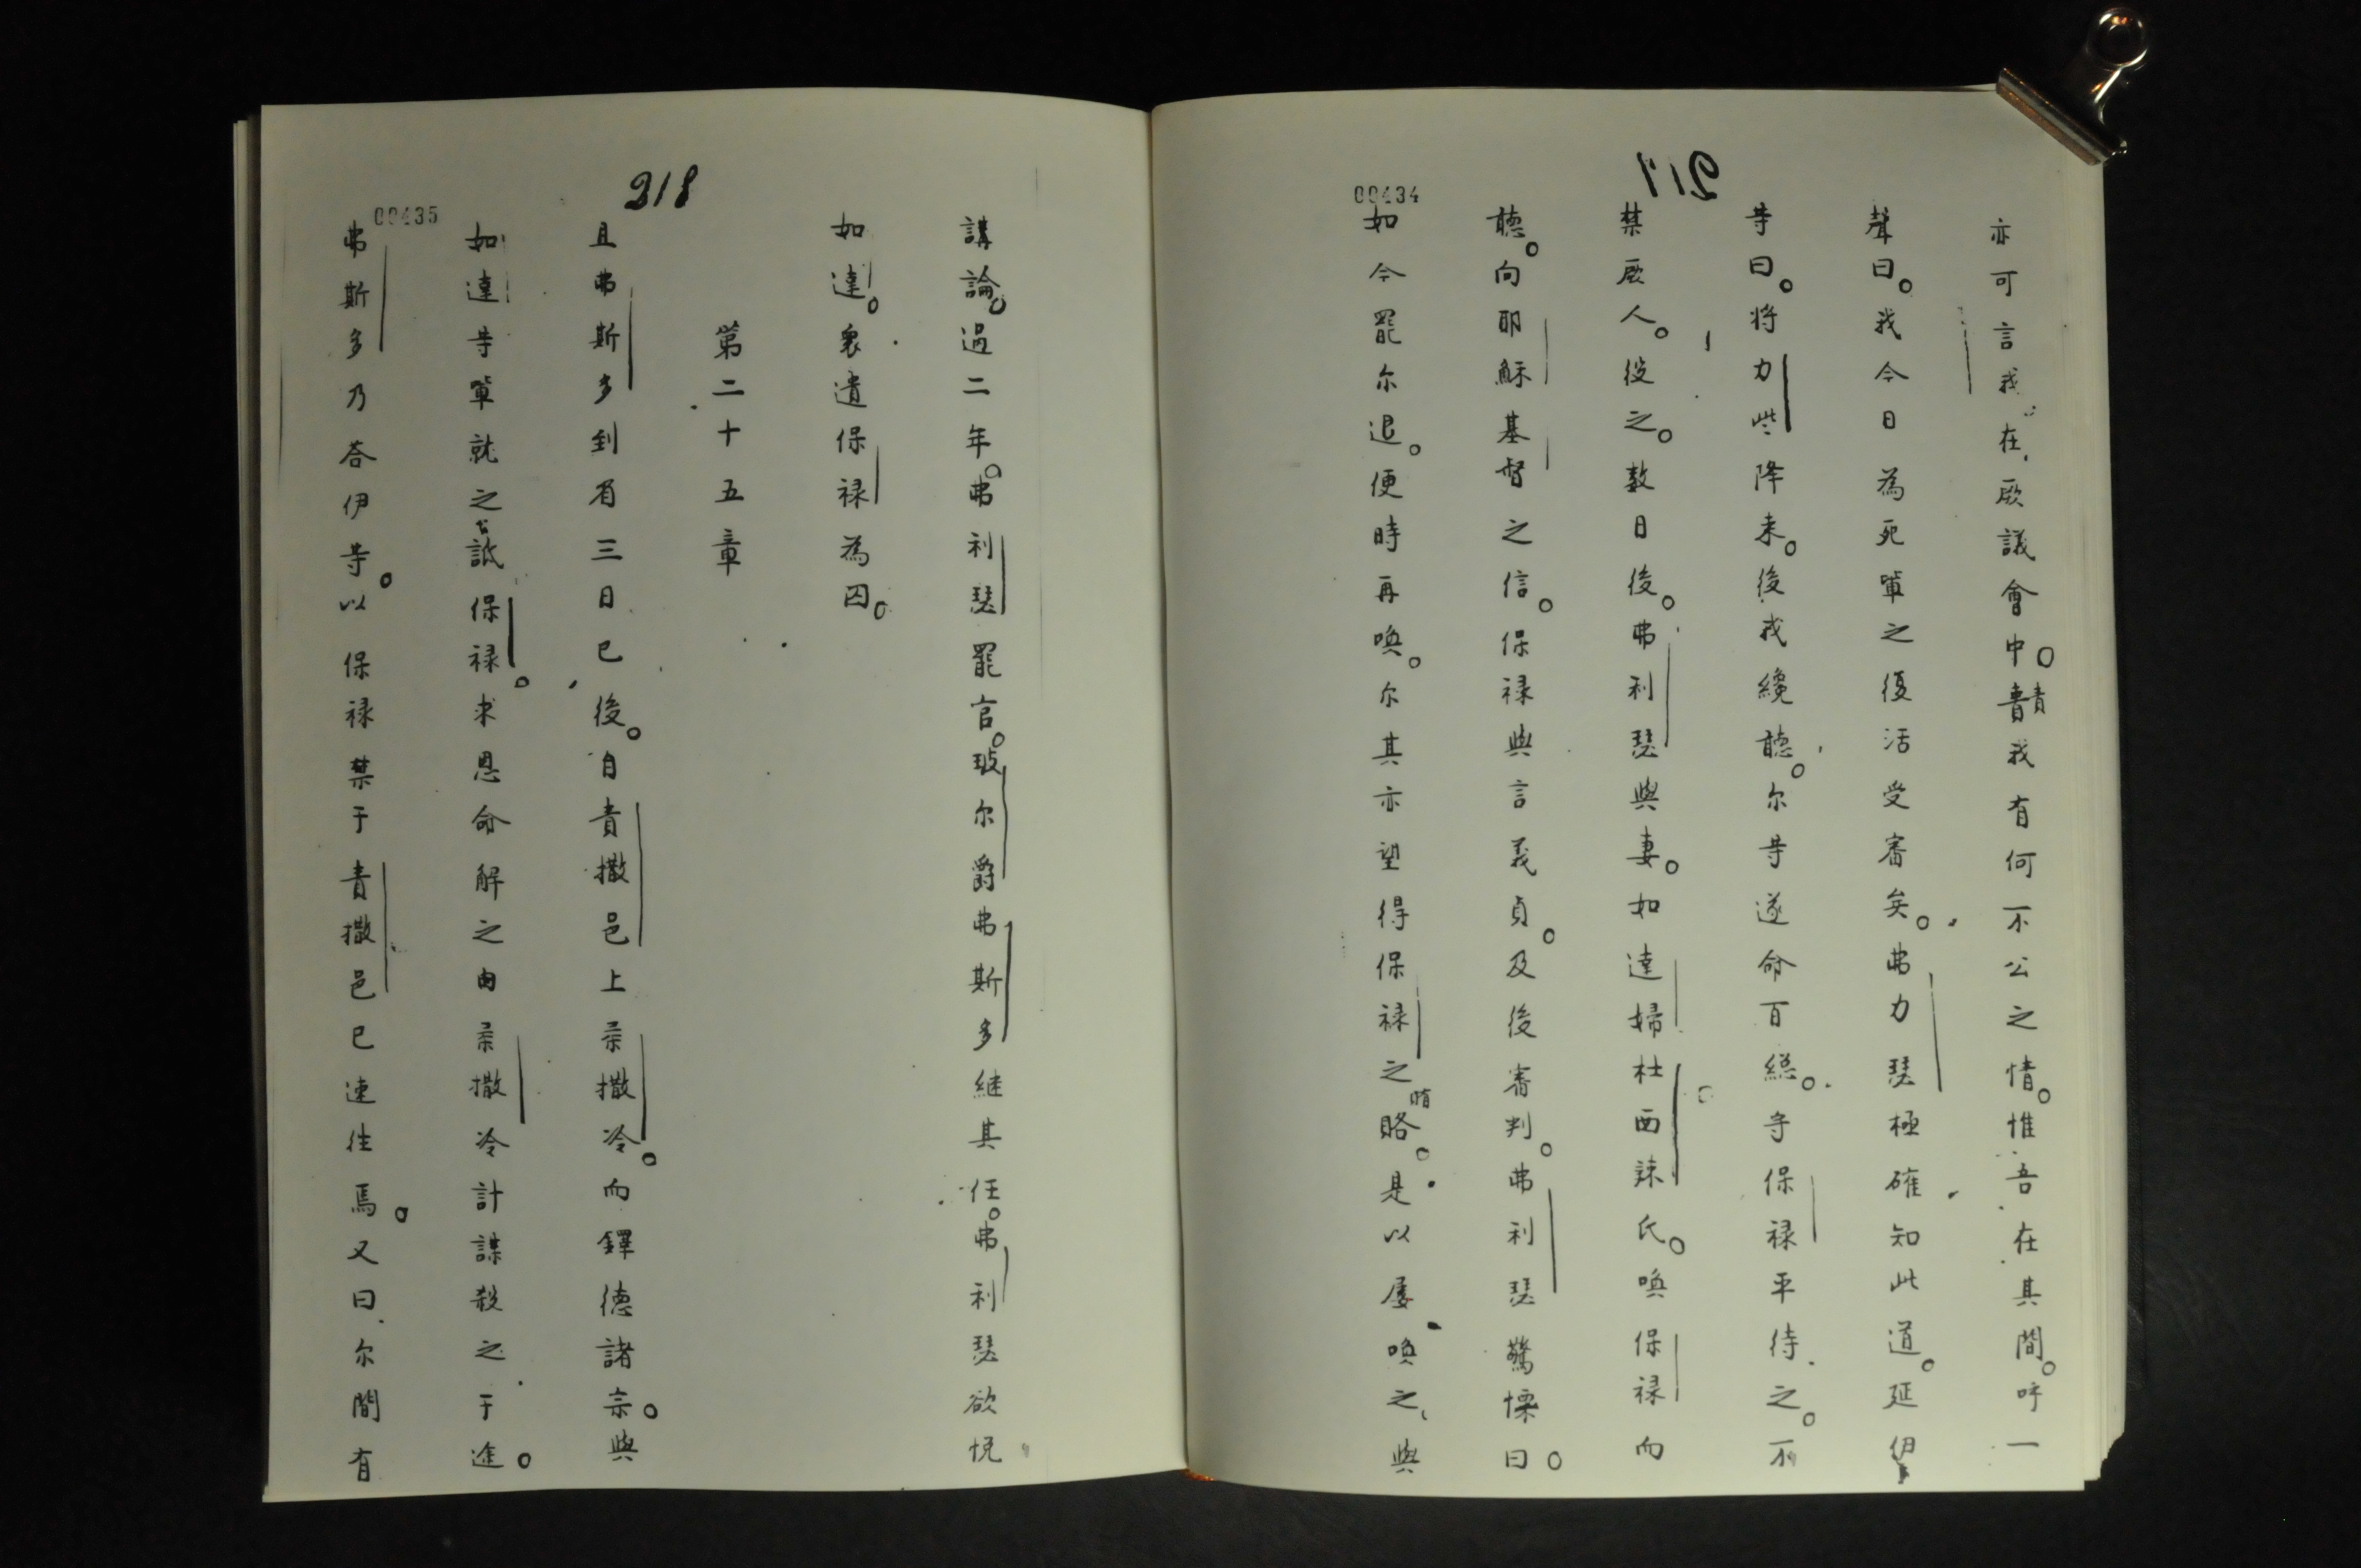 217
00434
亦可言我在厥議會中。責我有何不公之情。惟吾在其間。呼一
聲曰。我今日為死軰之復活受審矣。弗力瑟極確知此道。延伊
等曰。将力些降来。後我纔聽。尔等遂命百總。守保禄平待之。不
禁厥人。役之。数日後。弗利瑟與妻。如達婦杜西辣氏。喚保禄而
聽。向耶穌基督之信。保禄與言義貞。及後審判。弗利瑟驚慄曰。
如今罷尔退。便時再喚。尔其亦望得保禄之賂。是以屡喚之、與
218
00435
講論。過二年。弗利瑟罷官。玻尔爵弗斯多継其任。弗利瑟欲悅
如達。衆遺保禄為囚。
第二十五章
且弗斯多到省三日已後。自責撒邑上柔撒冷。而鐸德諸宗。與
如達等軰就之詆保禄。求恩命解之由柔撒冷計謀殺之于途。
弗斯多乃荅伊等。以保禄禁于責撒邑已速徃焉。又曰尔間有